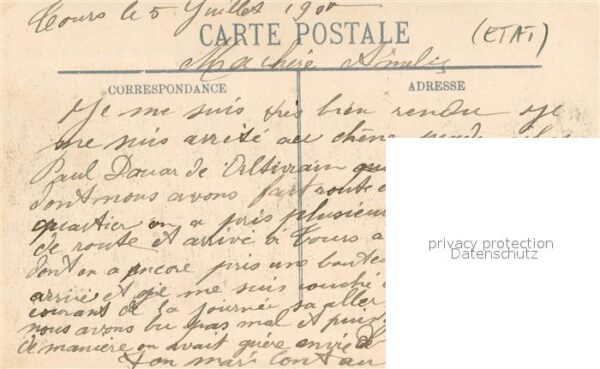 Tours le 5 Juillet 190
CARTE POSTALE
(ETAT)
Ma chère
CORRESPONDANCE
ADRESSE
Je me suis très bien rendu Je
me suis arreté au chêne
Paul Douar de
dont nous avons fait route
quartier on a pris plusieur
de route et arrivé à Tours a
dont on a encore pris une boutei
arrivé et je me suis couché
courant de la journée sa aller
nous avons bu pas mal et puis
de manière on avait guère envie de
ton mari
privacy protection
Datenschutz